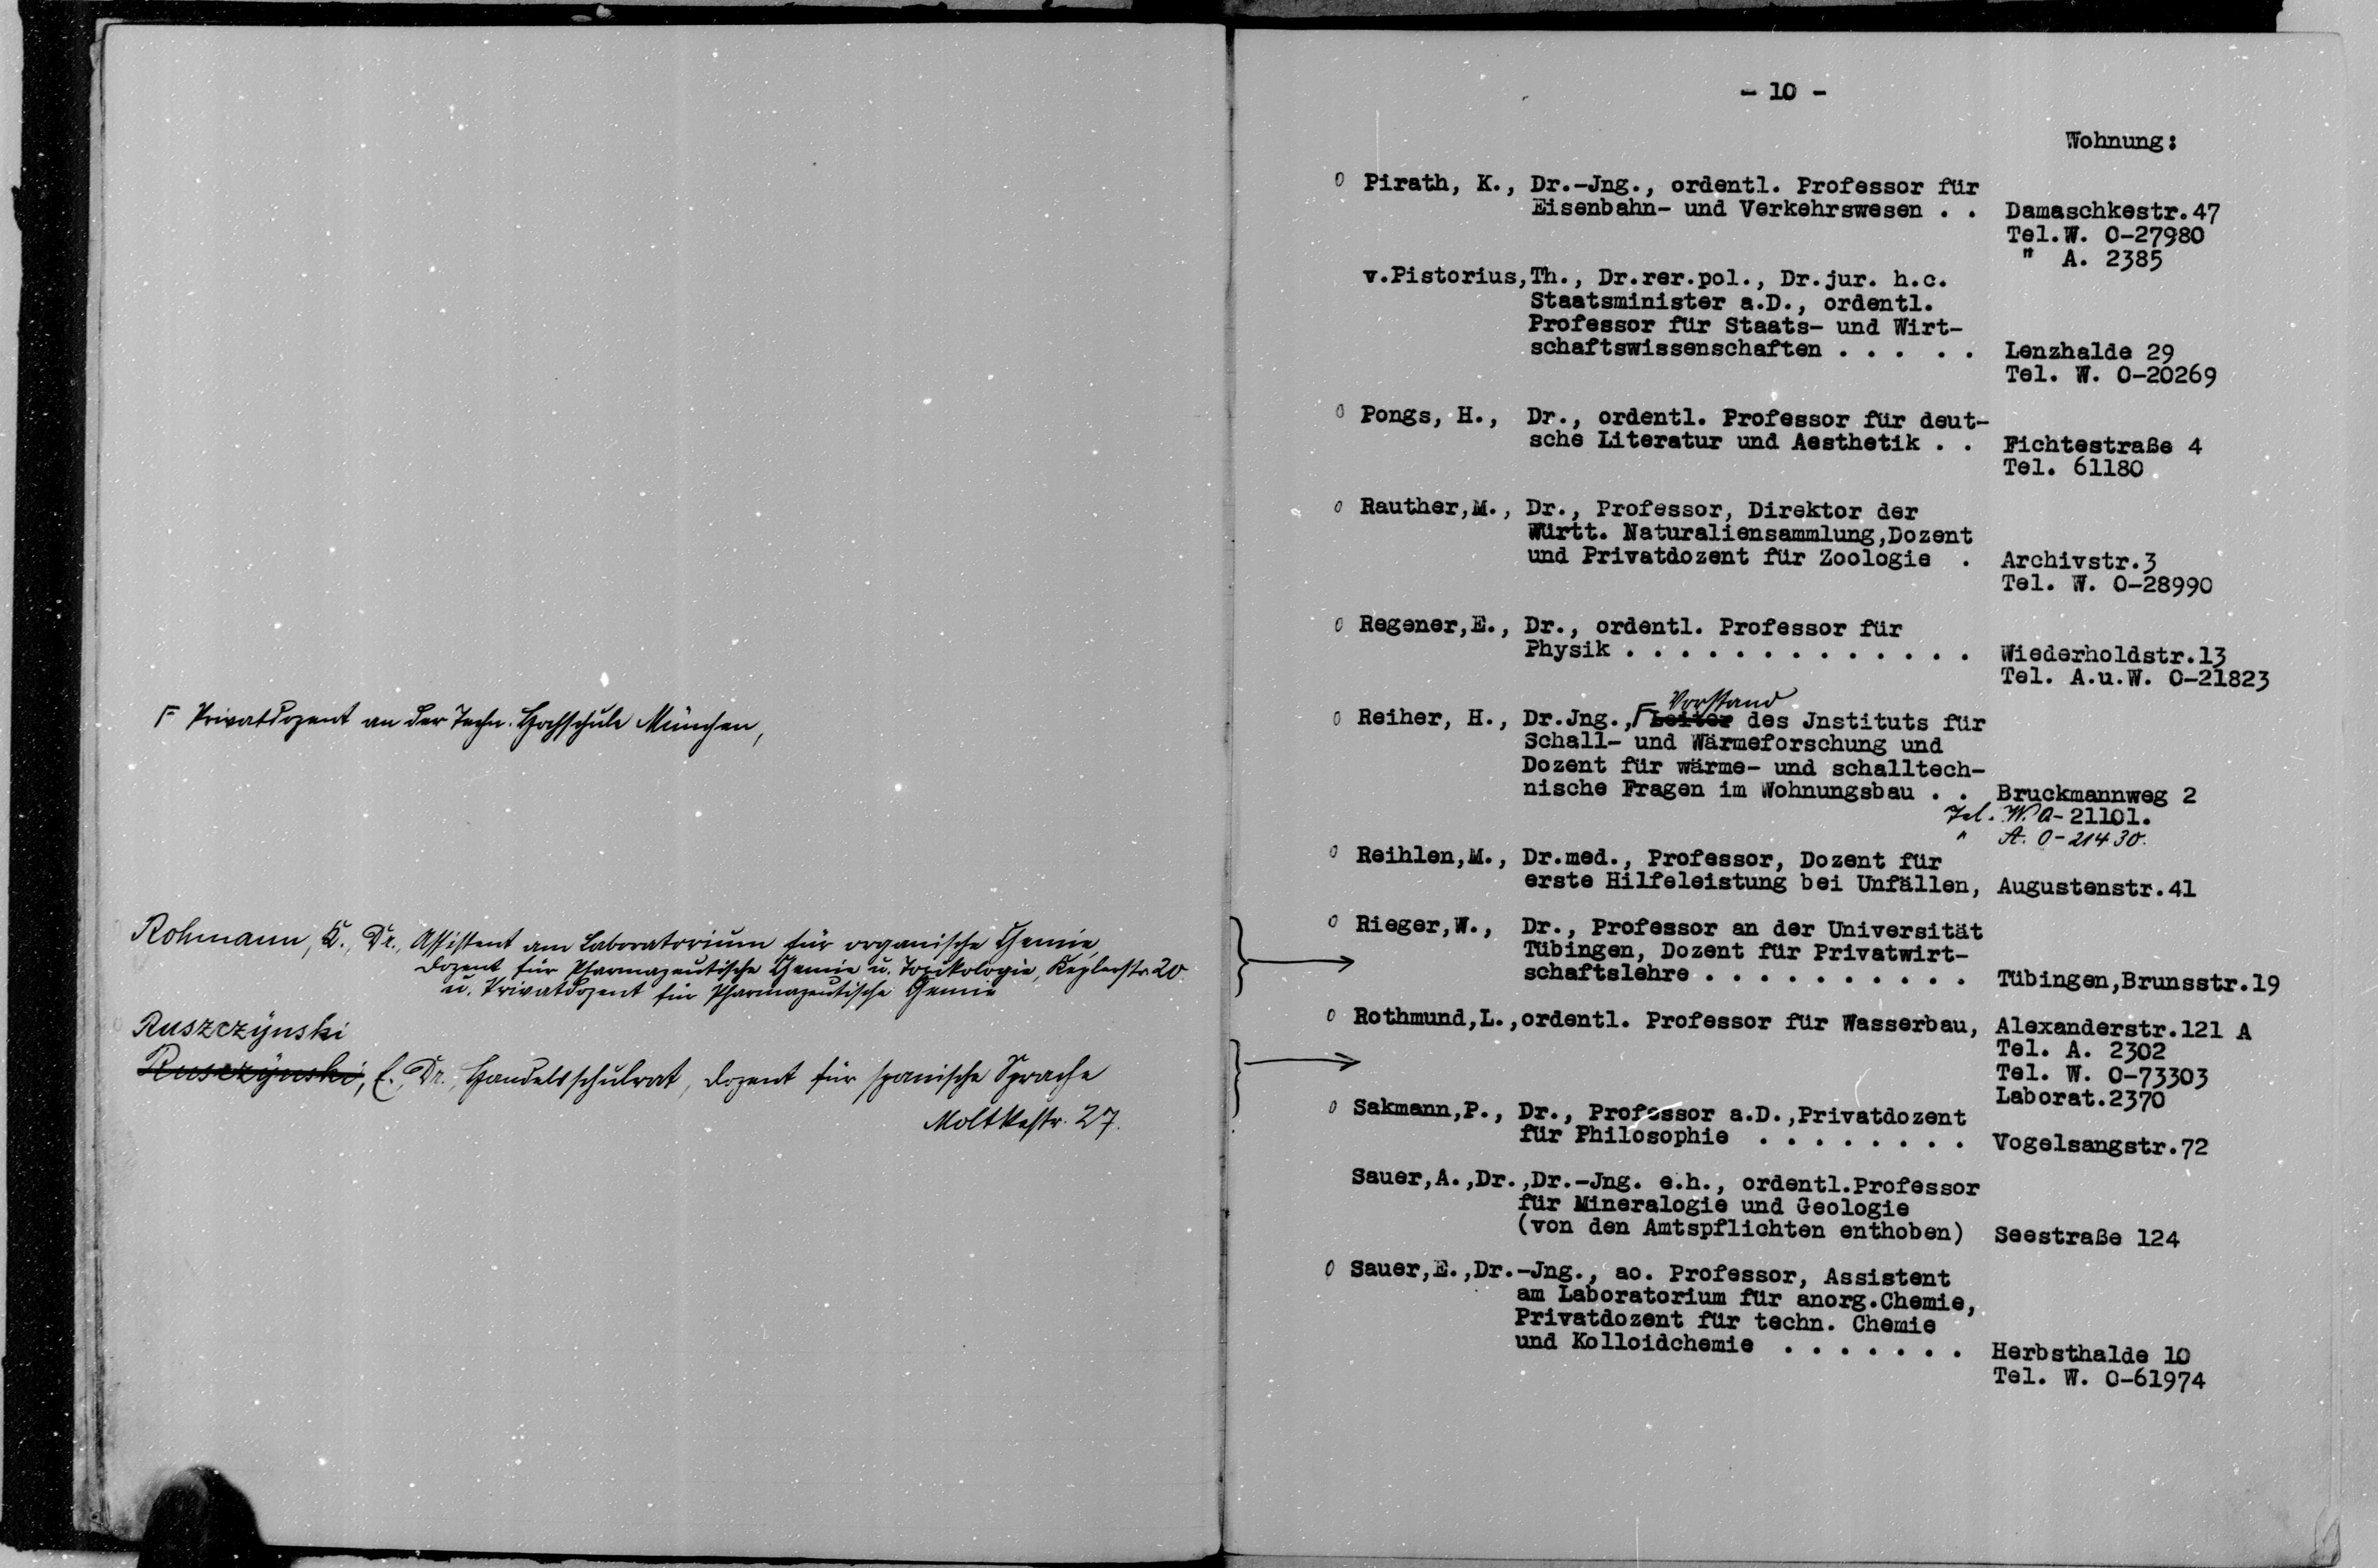 Γ Privatdozent an der Techn. Hochschule München,
Rohmann, C., Dr., Assistent am Laboratorium für organische Chemie,
Dozent für Pharmazeutische Chemie u. Toxikologie, Keplerstr. 20.
u. Privatdozent für Pharmazeutische Chemie
Ruszczÿnski
Rusczÿnski, E., Dr., Handelsschulrat, Dozent für spanische Sprache
Moltkestr. 27.
- 10 -
Wohnung:
0 Pirath, K., Dr.-Jng., ordentl. Professor für
Eisenbahn- und Verkehrswesen . . Damaschkestr.47
Tel.W. 0-27980
" A. 2385
v.Pistorius,Th., Dr.rer.pol., Dr.jur. h.c.
Staatsminister a.D., ordentl.
Professor für Staats- und Wirt-
schaftswissenschaften . . . . . Lenzhalde 29
Tel. W. 0-20269
0 Pongs, H., Dr., ordentl. Professor für deut-
sche Literatur und Aesthetik . . Fichtestraße 4
Tel. 61180
0 Rauther,M., Dr., Professor, Direktor der
Württ. Naturaliensammlung,Dozent
und Privatdozent für Zoologie . Archivstr.3
Tel. W. 0-28990
0 Regener,E., Dr., ordentl. Professor für
Physik . . . . . . . . . . . . . Wiederholdstr.13
Tel. A.u.W. 0-21823
Vorstand
0 Reiher, H., Dr.Jng.,Γ Leiter des Jnstituts für
Schall- und Wärmeforschung und
Dozent für wärme- und schalltech-
nische Fragen im Wohnungsbau . . Bruckmannweg 2
Tel. W. 0-21101.
" A. 0-21430.
0 Reihlen,M., Dr.med., Professor, Dozent für
erste Hilfeleistung bei Unfällen, Augustenstr.41
0 Rieger,W., Dr., Professor an der Universität
Tübingen, Dozent für Privatwirt-
schaftslehre . . . . . . . . . . Tübingen,Brunsstr.19
0 Rothmund,L.,ordentl. Professor für Wasserbau, Alexanderstr.121 A
Tel. A. 2302
Tel. W. 0-73303
Laborat.2370
0 Sakmann,P., Dr., Professor a.D.,Privatdozent
für Philosophie . . . . . . . . Vogelsangstr.72
Sauer,A.,Dr.,Dr.-Jng. e.h., ordentl.Professor
für Mineralogie und Geologie
(von den Amtspflichten enthoben) Seestraße 124
0 Sauer,E.,Dr.-Jng., ao. Professor, Assistent
am Laboratorium für anorg.Chemie,
Privatdozent für techn. Chemie
und Kolloidchemie . . . . . . . Herbsthalde 10
Tel. W. 0-61974